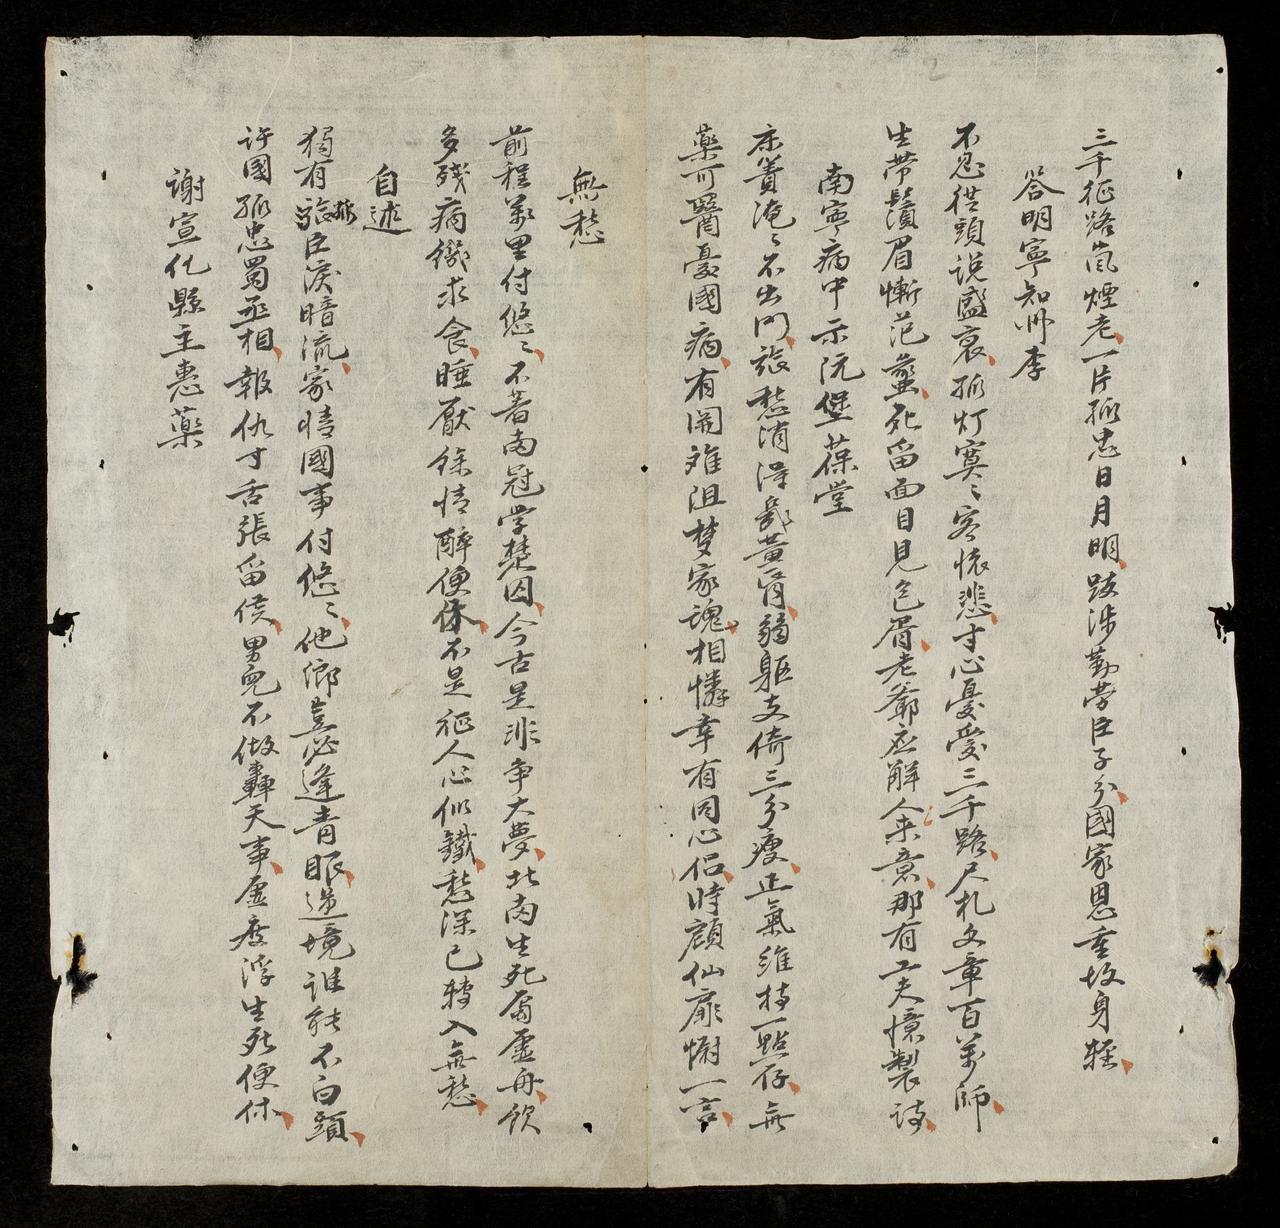 三千征路嵐煙老一片孤忠日月明跋涉勤勞臣子分國家恩重故身輕
答明寧知州李
不忍從頭說盛衰孤灯寞〻客懷悲寸心憂愛三千路尺札文章百萬師
生帶鬚眉慚范蠡死留面目見包胥老爺应解人来意那有工夫憶製詩
南寧病中示沅堡葆堂
床簀淹〻不出門旅愁消得彀黃昏弱軀支倚三分瘦正氣維持一點存無
藥可醫憂國病有関难沮梦家魂相憐幸有同心侶時顧仙扉慰一言
無愁
前程萬里付悠〻不着南冠学楚囚今古是非争大夢北南生死屬虛舟飲
多殘病纔求食睡厭餘情醉便休不是征人心似鐵愁深已轉入無愁
自述
獨有孤臣淚暗流家情國事付悠〻他鄉豈必逢青眼邊境誰能不白頭
許國孤忠蜀丞相報仇寸舌張留侯男兒不做轟天事虛度浮生死便休
謝宣化縣主惠藥